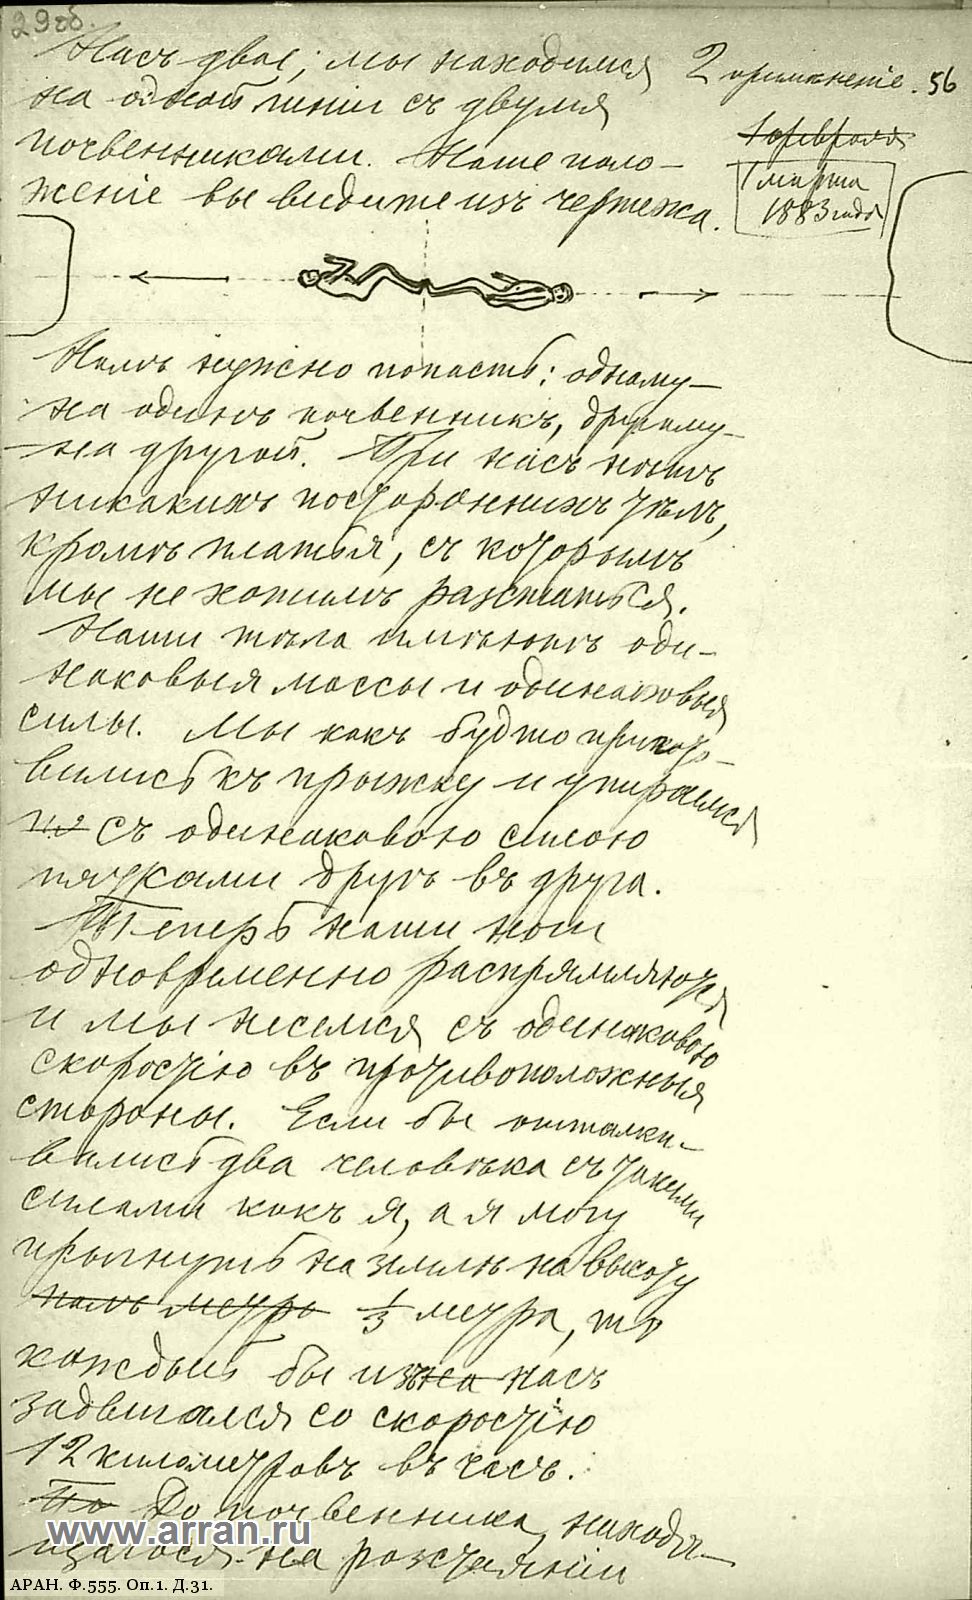 29об.
Насъ двое; мы находимся
на одной линіи съ двумя
почвенниками. Наше поло-
женіе вы видите изъ чертежа.
2 примѣненіе. 56
1 февраля
1 марта
1883 года
Намъ нужно попасть: одному –
на одинъ почвенникъ, другому –
– на другой. При насъ нѣтъ
никакихъ постороннихъ тѣлъ,
кромѣ платья, съ которымъ
мы не хотимъ разстаться.
Наши тѣла имѣютъ оди-
наковыя массы и одинаковыя
силы. Мы какъ будто пригото-
вились къ прыжку и упираемся
съ одинаковою силою
пятками другъ въ друга.
Теперь наши ноги
одновременно распрямляются
и мы несемся съ одинаковою
скоростію въ противоположныя
стороны. Если бы отталки-
вались два человѣка съ такими
силами какъ я, а я могу
прыгнуть на землѣ на высоту
полъ метра 1/3 метра, то
каждый бы изъ на насъ
задвигался со скоростію
12 километровъ въ часъ.
По До почвенника, находя-
щагося на разстояніи
www.arran.ru
АРАН. Ф.555. Оп.1. Д.31.